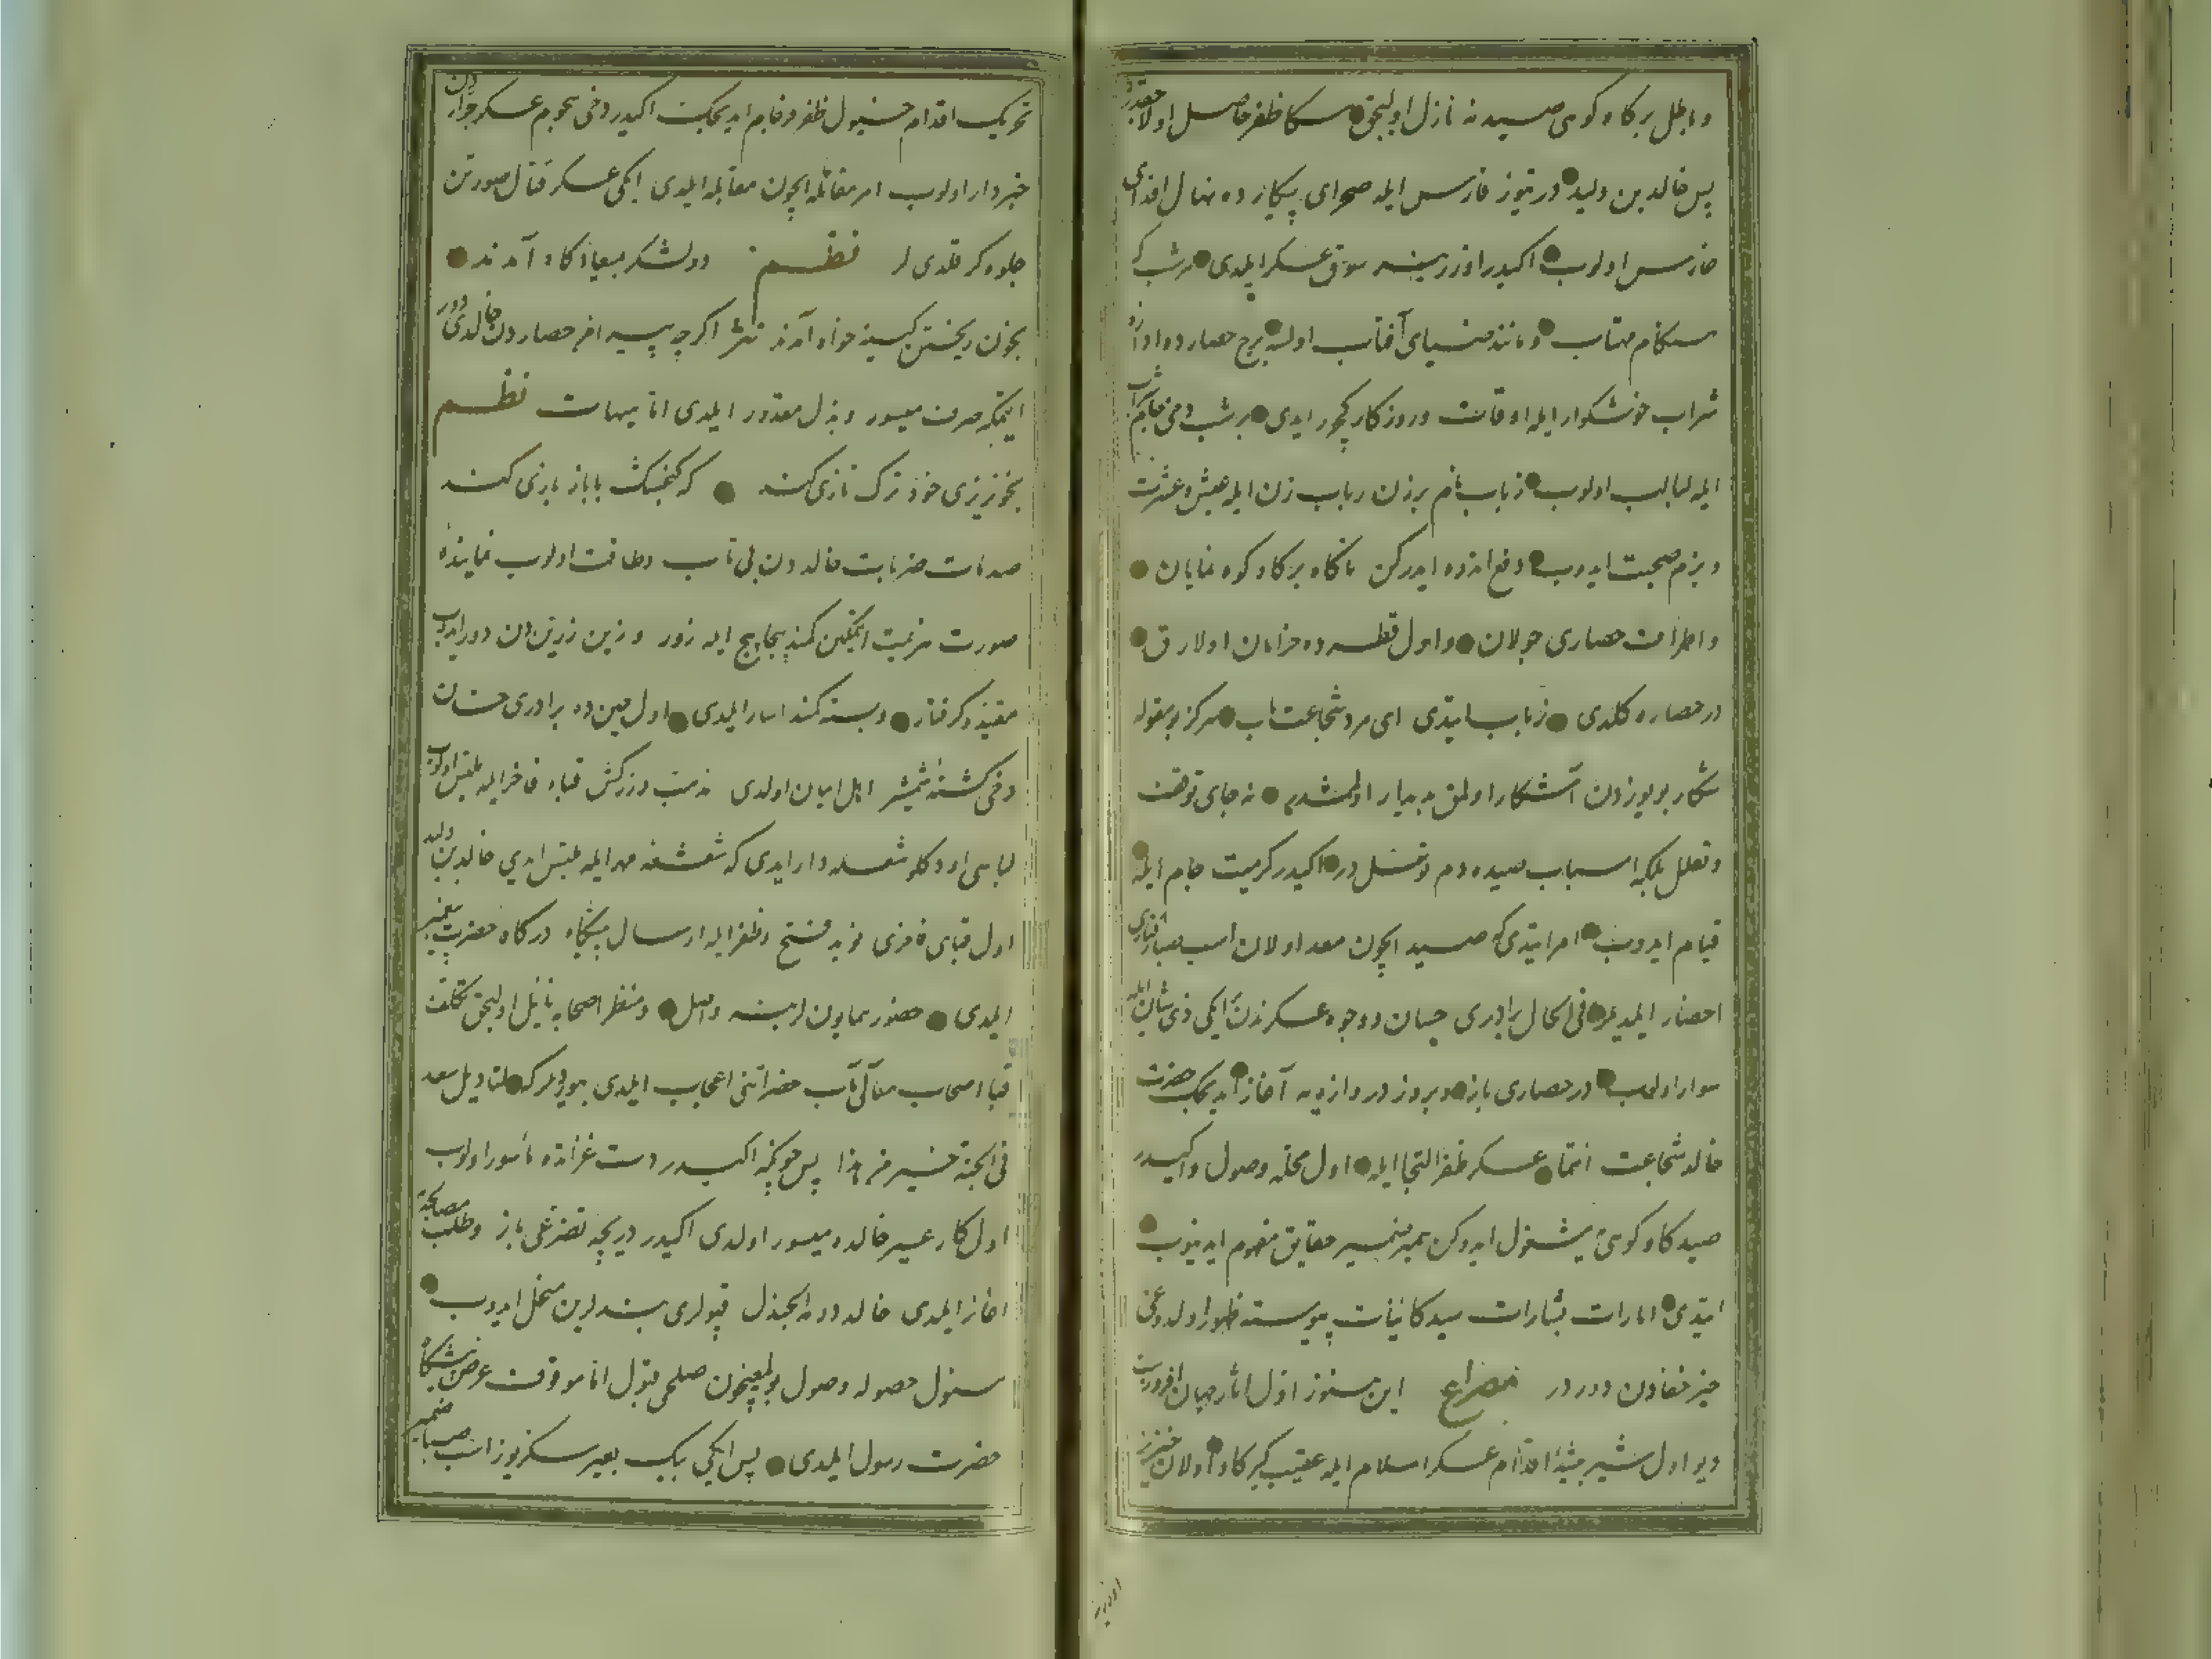 و باطل بر كاو كوهی صیدینه نازل اولیجق سكا ظفر حاصل اولا
پس خالد بن ولید درتیوز فارس ایله صحرای پیكار ده نهال اقدامی
غارس اولوب اكیدر اوزرینه سوق عسكر ایلدی هر شب كه
هنكام مهتاب و مانند ضیای آفتاب اوله برج حصار ده
شراب خوشكوار ایله اوقات و روزكار كچورر ایدی بر شب دخی جام شراب
ایله لبالب اولوب رباب نام بر زن رباب زن ایله عیش و عشرت
و بزم صحبت ایدوب دفع اندوه ایدركن ناكاه بر كاو كوه نمایان
و اطراف حصاری جولان و اول قطره ده خرامان اولارق
در حصاره كلدی رباب ایتدی ای مرد شجاعت مآب هركز بو مقوله
شكار بو یوزدن آشكار اولمق پدیدار اولمشدر نه جای توقف
و تعلل بلكه اسباب صیده دم توسلدر اكیدر كرمیت جام ایله
قیام ایدوب امر ایتدی كه صید ایچون معد اولان اسب صبا رفتاری
احضار ایلدیلر فی الحال برادری حسان و وجوه عسكرندن ایكی ذی شان ایله
سوار اولوب در حصاری باز و بروز دروازه یه آغاز ایدیجك حضرت
خالد شجاعت انتما عسكر ظفر التجا ایله اول محله وصول و اكیدر
صید كاو كوهی یه مشغول ایدوكن ضمیر حقایق مفهوم ایدینوب
ایتدی امارات بشارات سید كاینات پیوسته ظهور اولدوغی
حیز خفادن دوردر مصراع این هنوز اول آثار جهان افروزیست
دیو اول شیر بیشۀ اقدام عسكر اسلام ایله عقیب كیر كاو اولان
تحریك اقدام خیول ظفر فرجام ایدیجك اكیدر دخی هجوم عسكر جراردن
خبردار اولوب امر مقاتله ایچون مقابله ایلدی ایكی عسكر قتال صورتن
جلوه كر قلدی لر نظم دو لشكر بمیعادكاه آمدند
بخون ریختن كینه خواه آمدند نثر اكرچه پسر اخر حصاردن خالدی دور
ایتمكه صرف میسور و بذل مقدور ایلدی اما هیهات نظم
بخونریزی خود ترك تازی كند كه كنجشك با باز بازی كند
صدمات ضربات خالددن بی تاب و طاقت اولوب نماینده
صورت هزیمت ایتمكین كمند پیچاپیچ ایله زور و زین زریندن دور ایدوب
مقید و كرفتار و بسته كمند اسار ایلدی اول حین ده برادری حسان
دخی كشته شمشیر اهل ایمان اولدی مذهب و زركش قباء فاخر ایله ملتبس اولوب
لباسی اودكلو شعله دار ایدی كه شعشعه مهر ایله ملتبس ایدی خالد بن ولید
اول قبای فاخری نوید فتح و ظفر ایله ارسال پیشكاه دركاه حضرت پیغمبر
ایلدی حضور همایون لرینه واصل و منظر اصحابه نایل اولیجق تكلف
قبا اصحاب معالی مآب حضراتنی اعجاب ایلدی بیوردیلر كه لمنادیل سعد
فی الجنة خیر من هذا پس چونكه اكیدر دست غزاته مأسور اولوب
اول كار عسیر خالده میسور اولدی اكیدر دریچه تضرعی باز و طلب مصالحه
آغاز ایلدی خالد دومة الجندل قپولری بندلرین منحل ایدوب
مسئول حصوله وصول بولمغیچون صلحی قبول اما موقوف عرض پیشكاه
حضرت رسول ایلدی پس ایكی بیك بعیر سكز یوز اسب